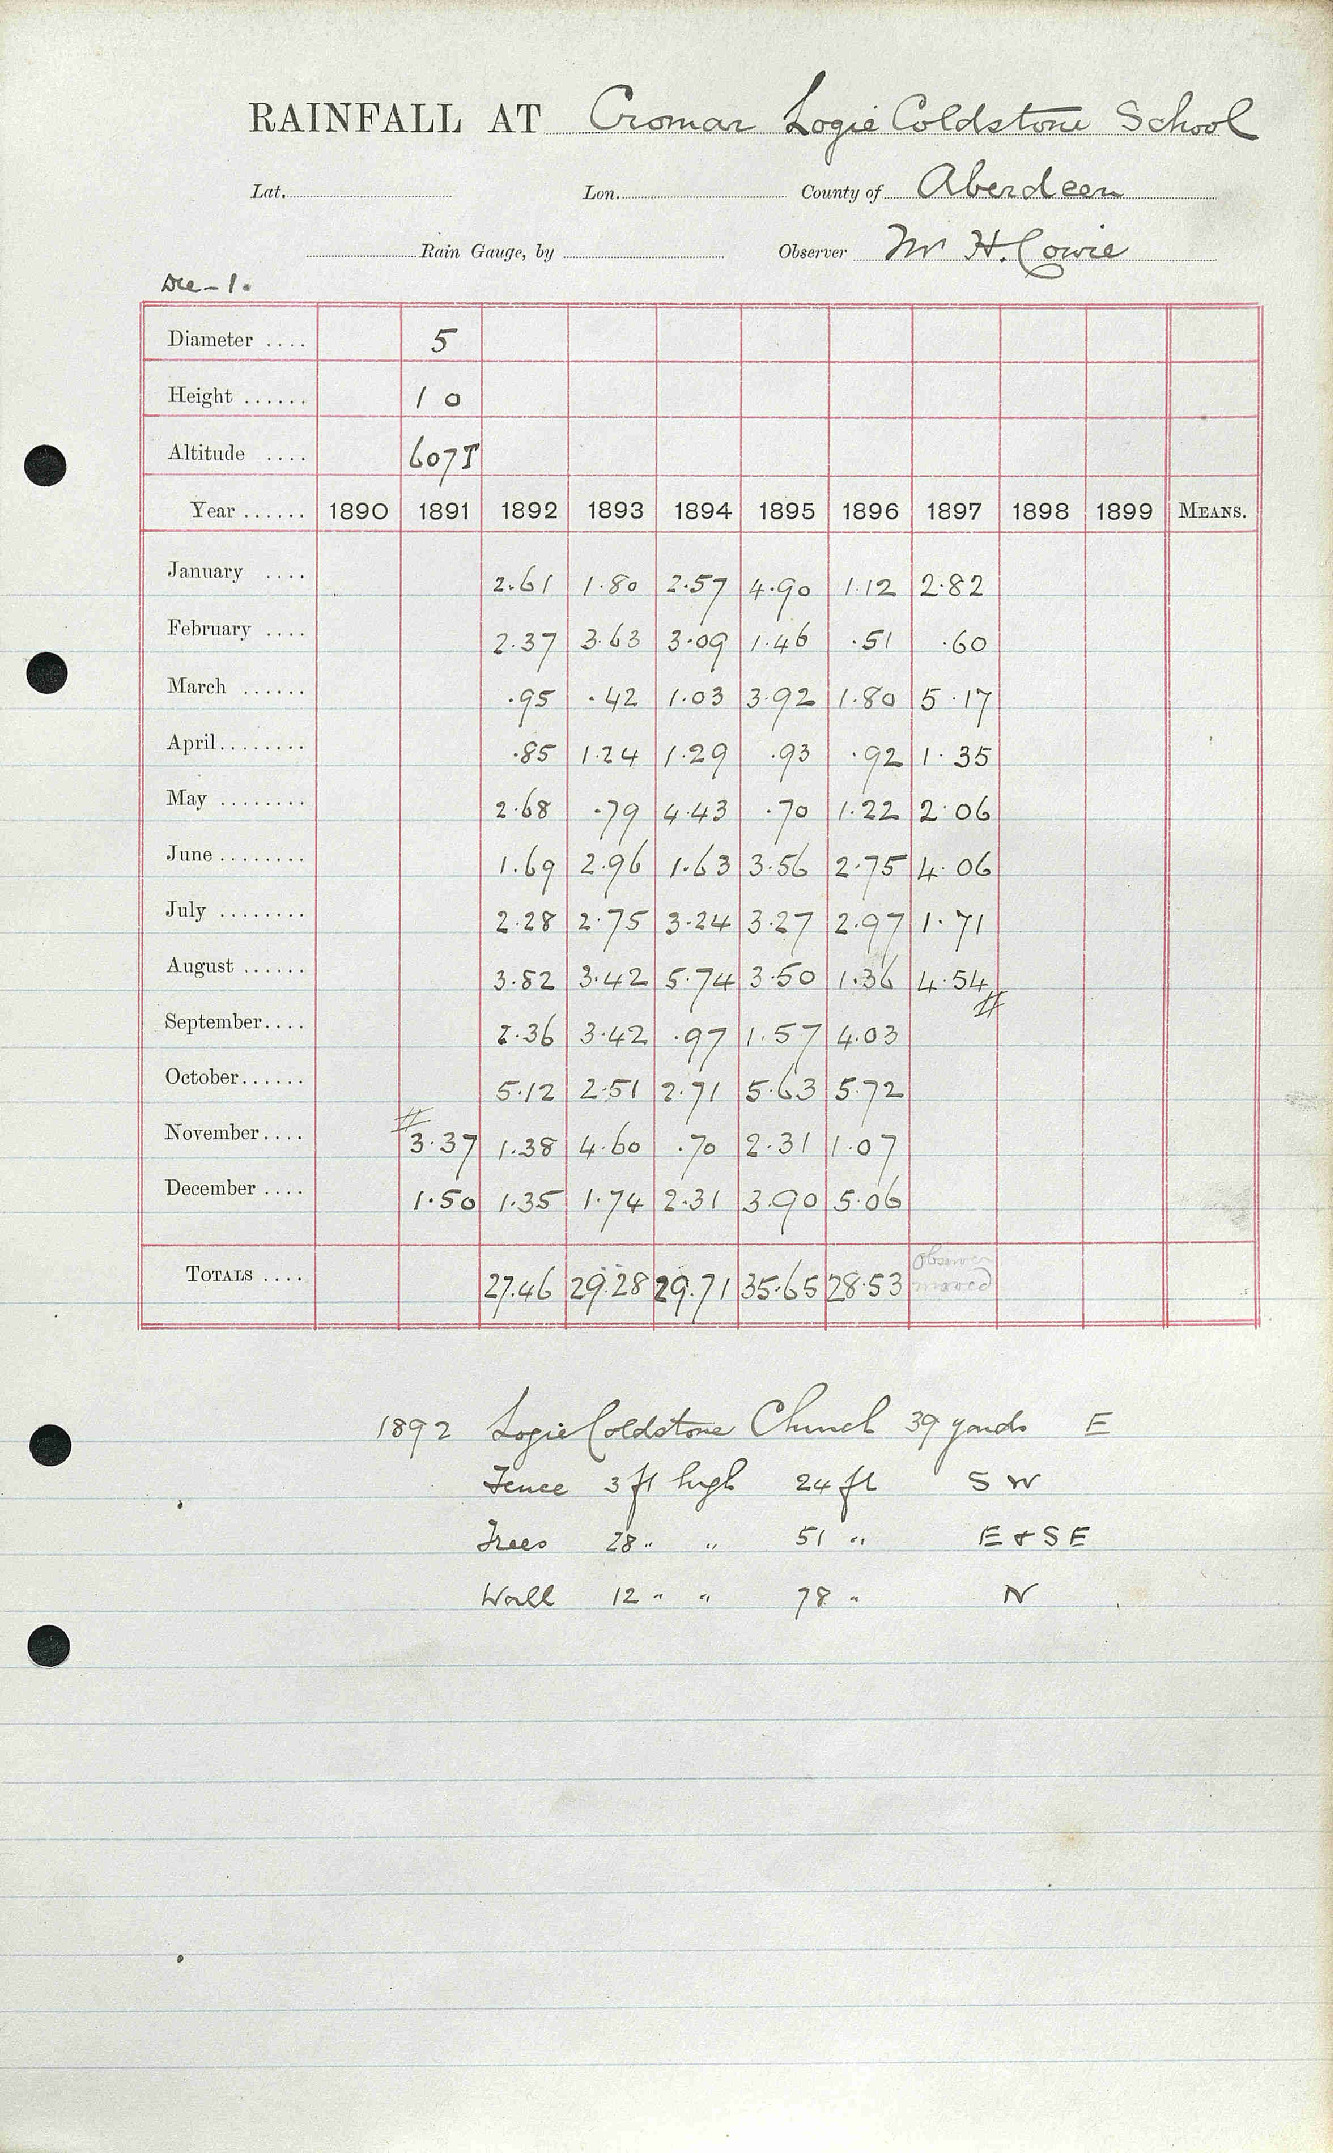 RAINFALL AT Cromar Logie Coldstone School
Lat. Lon. County of Aberdeen
Rain Gauge, by Observer Mr H. Cowie
Dee - 1.
Diameter .... 5
Height ...... 1 0
Altitude .... 607T
Year ...... 1890 1891 1892 1893 1894 1895 1896 1897 1898 1899 MEANS.
January .... 2.61 1.80 2.57 4.90 1.12 2.82
February .... 2.37 3.63 3.09 1.46 .51 .60
March ...... .95 .42 1.03 3.92 1.80 5.17
April........ .85 1.24 1.29 .93 .92 1.35
May ........ 2.68 .79 4.43 .70 1.22 2.06
June ........ 1.69 2.96 1.63 3.56 2.75 4.06
July ........ 2.28 2.75 3.24 3.27 2.97 1.71
August ...... 3.82 3.42 5.74 3.50 1.36 4.54 #
September.... 2.36 3.42 .97 1.57 4.03
October...... 5.12 2.51 2.71 5.63 5.72
November.... # 3.37 1.38 4.60 .70 2.31 1.07
December .... 1.50 1.35 1.74 2.31 3.90 5.06
TOTALS .... 27.46 29.28 29.71 35.65 28.53 Observer moved
1892 Logie Coldstone Church 39 yards E
Fence 3 ft high 24 ft S W
Trees 28 " " 51 " E + S E
Wall 12 " " 78 " N